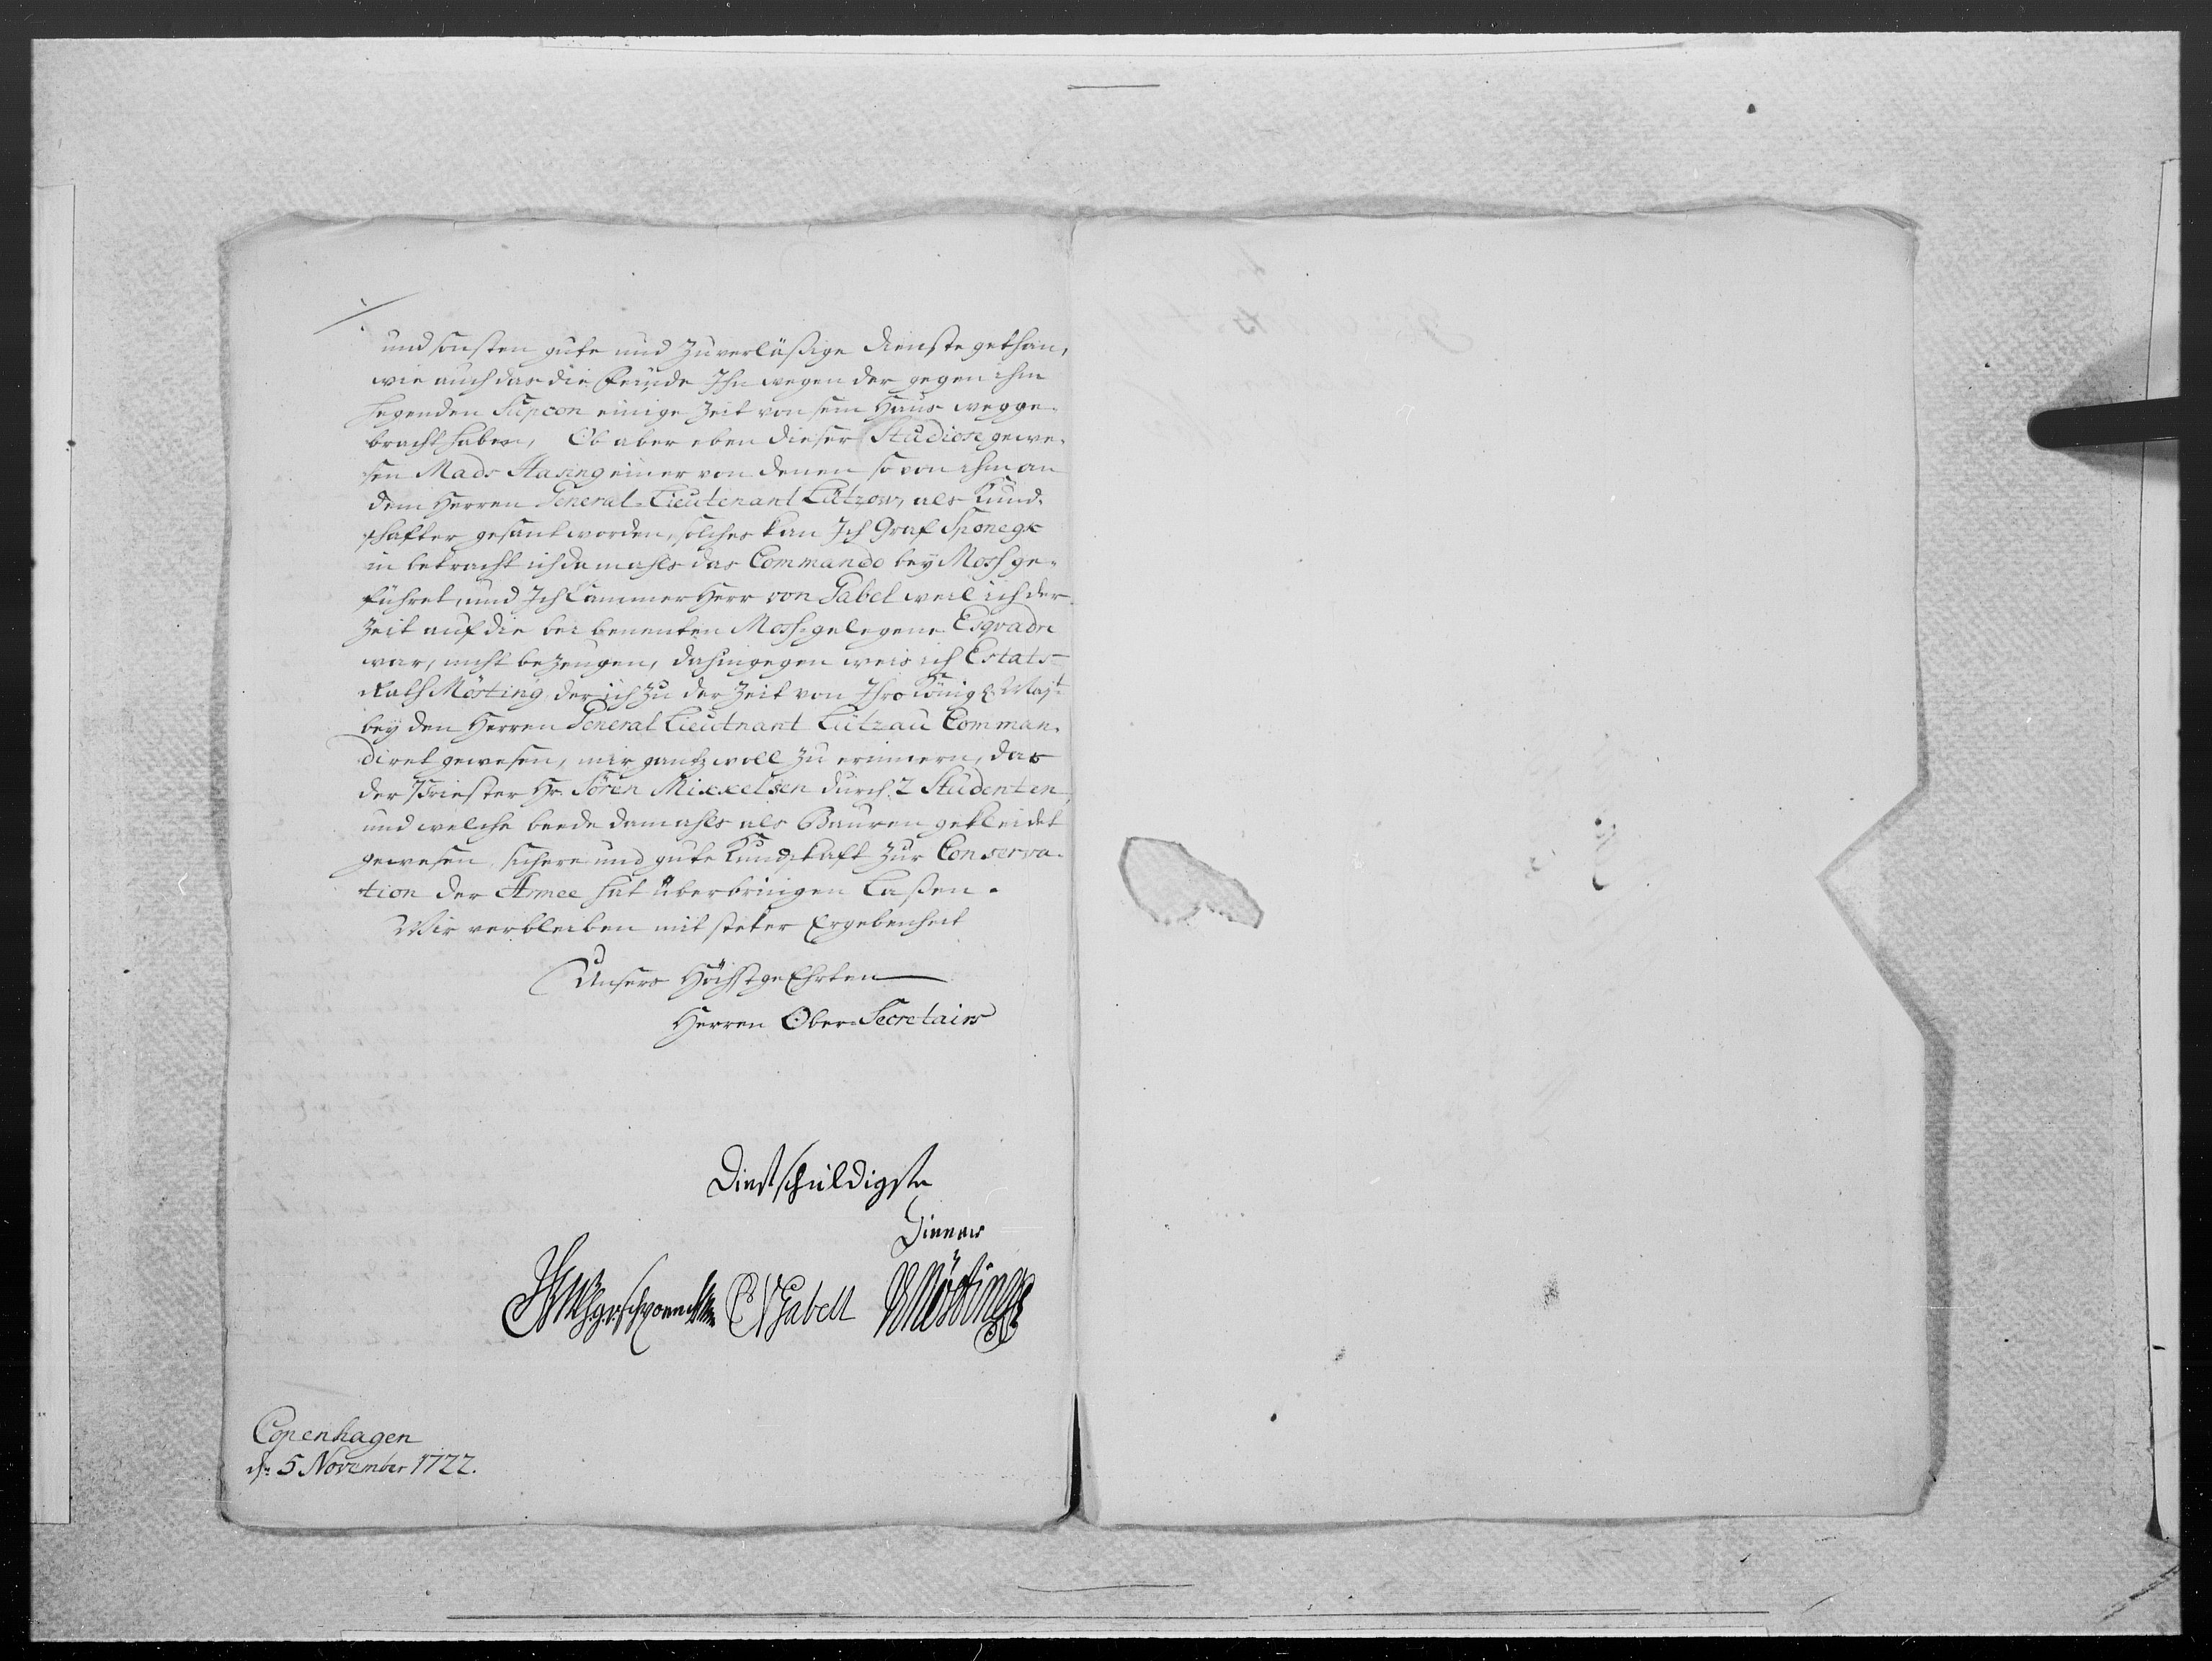 und sonsten gute und zuverläßige dienste gethan,
wie auch das die Feinde Ihn wegen der gegen ihm
hegenden Supcon einige Zeit von sein Haus wegge-
bracht haben, Ob aber eben dieser Studiose gewe-
sen Mads Stasing einer von denen so von ihm an
dem Herren General-Lieutenant Lützow, als Kund-
schafter gesant worden, solches kan Ich Graf Sponegk
in betracht ich damahls das Commando bey Moss ge-
führet, und Ich Cammer Herr von Gabel weil ich der
Zeit auf die bei benenten Moss gelegene Esqvadre
war, nicht bezeugen, dahingegen weis ich Estats-
Rath Mösting, der ich zu der Zeit von Ihro Königl. Mayt
bey den Herren General Lieutnant Lützau Comman-
diret gewesen, mir gantz woll zu erinnern, das
der Priester Hr. Sören Mickelsen durch 2 Studenten,
und welche beede damahls als Bauren gekleidet
gewesen, sichere und gute Kundschaft zur Conserva-
tion der Armee hat überbringen Laßen.
Wir verbleiben mit steter Ergebenheit
Unsers HöchstgeEhrten
Herren Ober-Secretairs
Dienstschuldigste
Diener
CVGabell VMösting
Copenhagen
dn 5 November 1722.